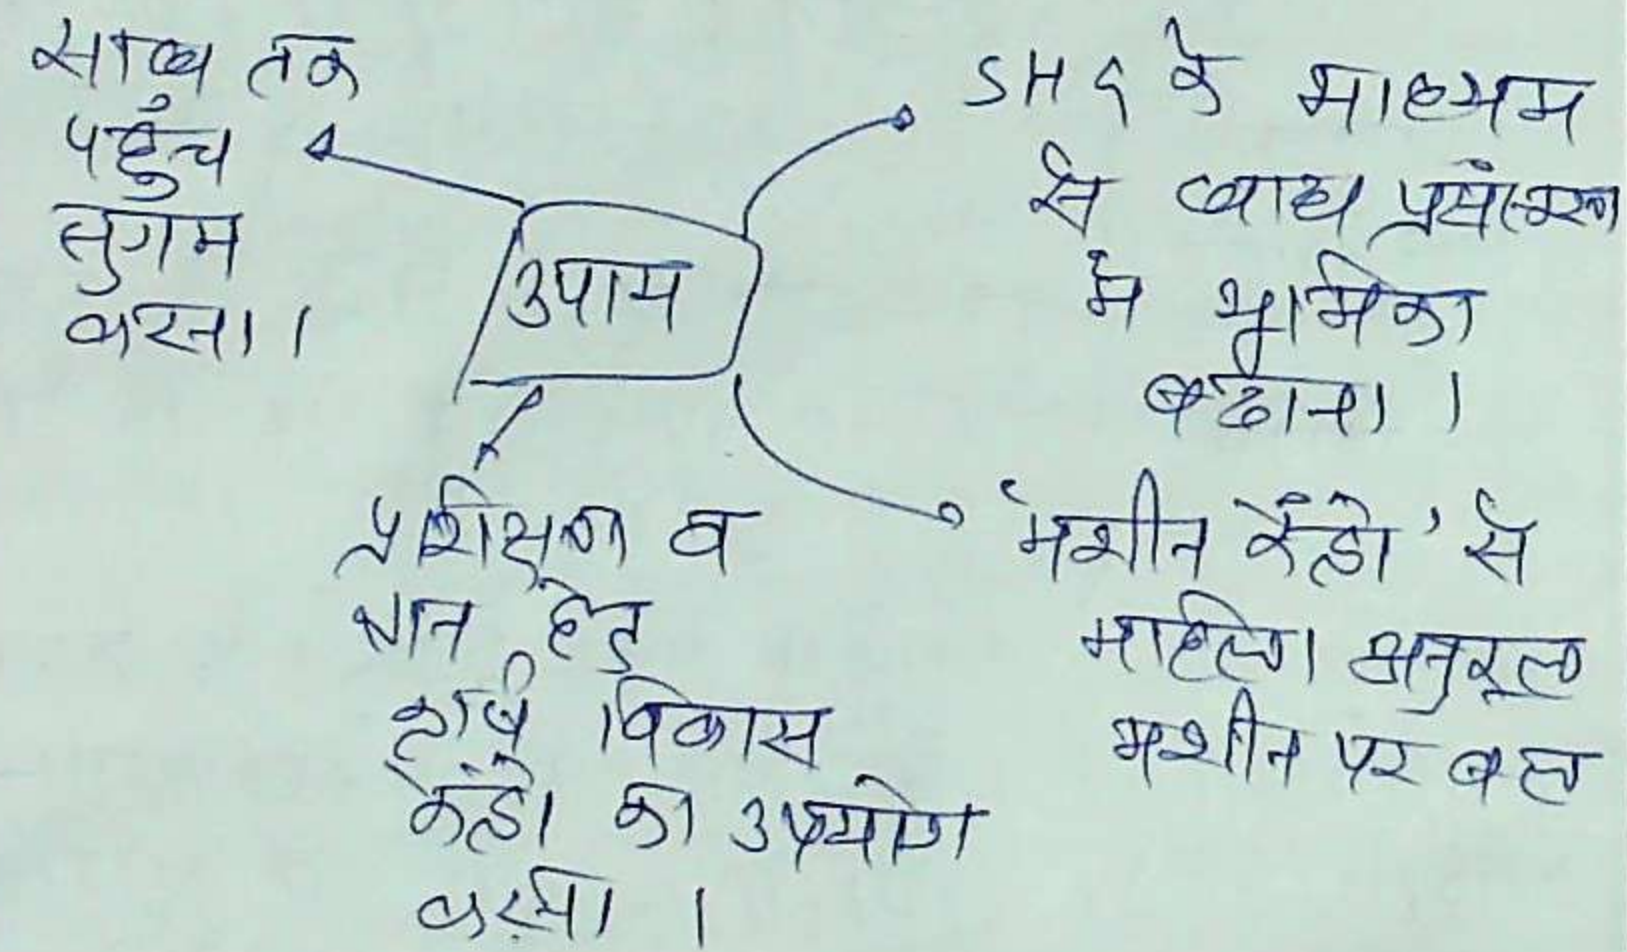 साख तक
पहुंच
सुगम
करना।
उपाय
SHG के माध्यम
से खाद्य प्रसंस्करण
में भूमिका
बढाना।
प्रशिक्षण व
ज्ञान हेतु
कृषि विकास
केंद्रो का उपयोग
करना।
'मशीन केंद्रो' से
महिला अनुकूल
मशीन पर बल